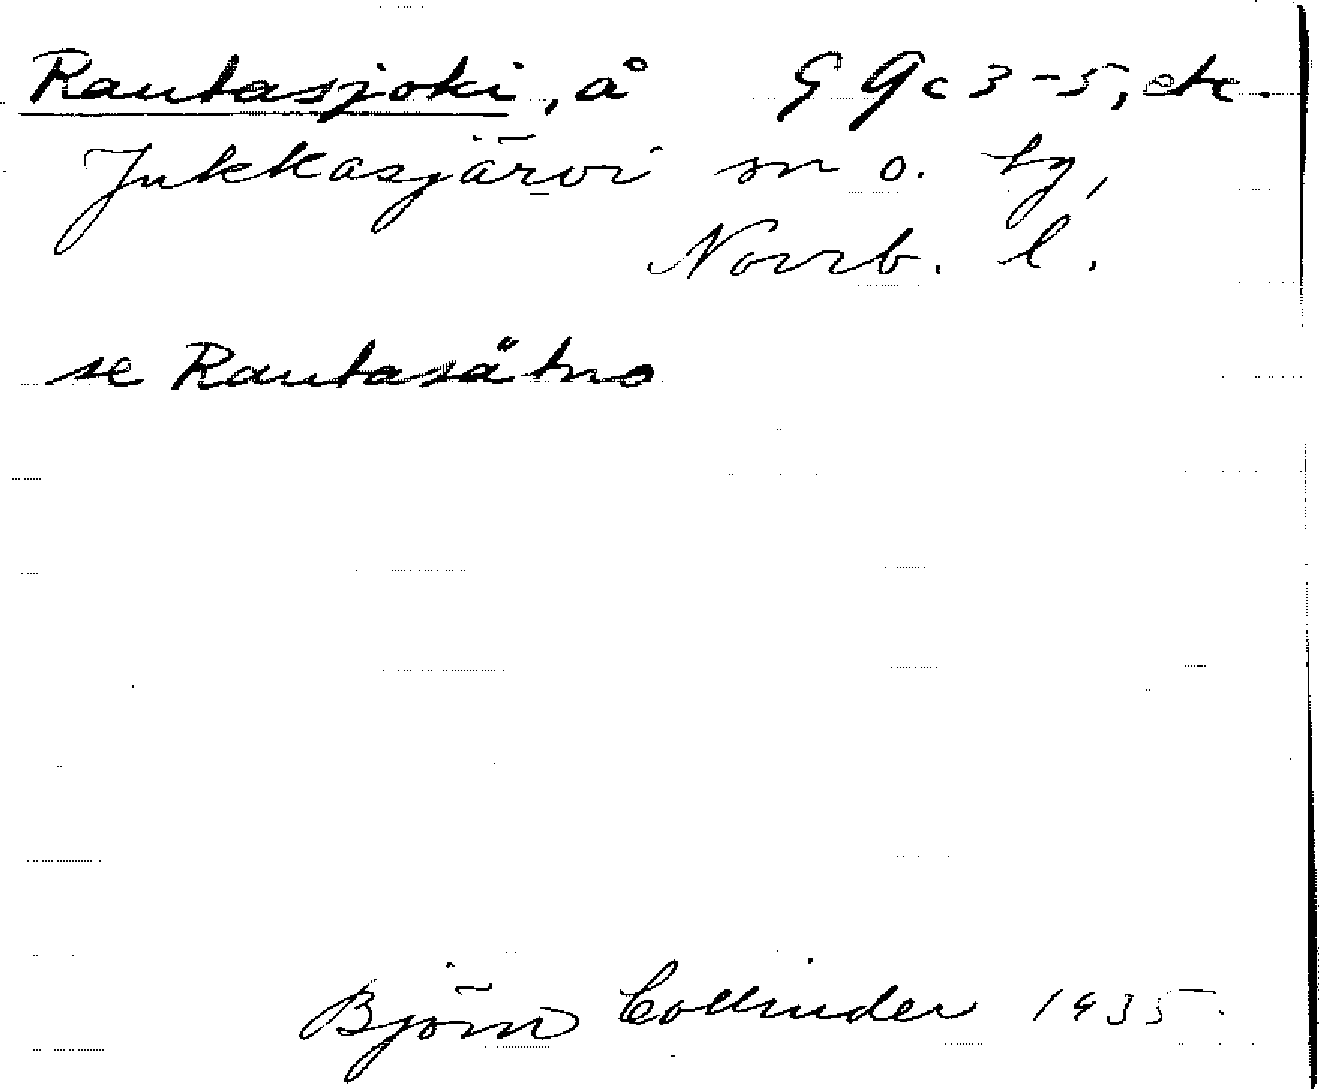 Rautasjoki, å G 9c 3-5, etc.
Jukkasjärvi sn o. tg,
Norrb. l.
se Rautasätno
Björn Collinder 1935.